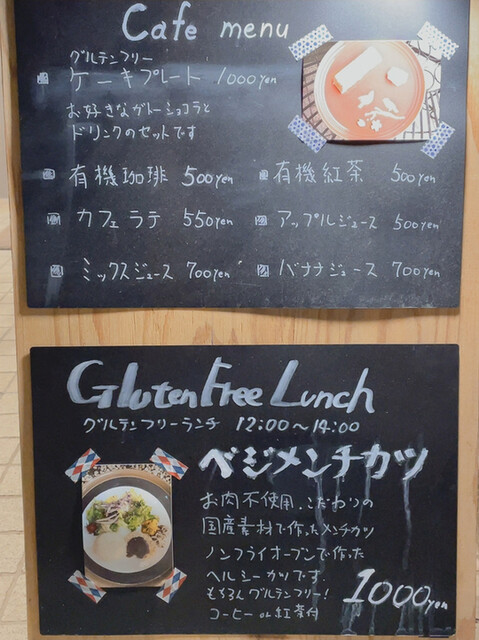 Cafe menu
グルテンフリー
ケーキプレート 1000yen
お好きなガトーショコラと
ドリンクのセットです
有機珈琲 500yen
有機紅茶 500yen
カフェラテ 550yen
アップルジュース 500yen
ミックスジュース 700yen
バナナジュース 700yen
Gluten Free Lunch
グルテンフリーランチ 12:00～14:00
ベジメンチカツ
お肉不使用、こだわりの
国産素材で作ったメンチカツ
ノンフライオーブンで作った
ヘルシーカツです。
もちろんグルテンフリー!
コーヒー or 紅茶付
1000yen